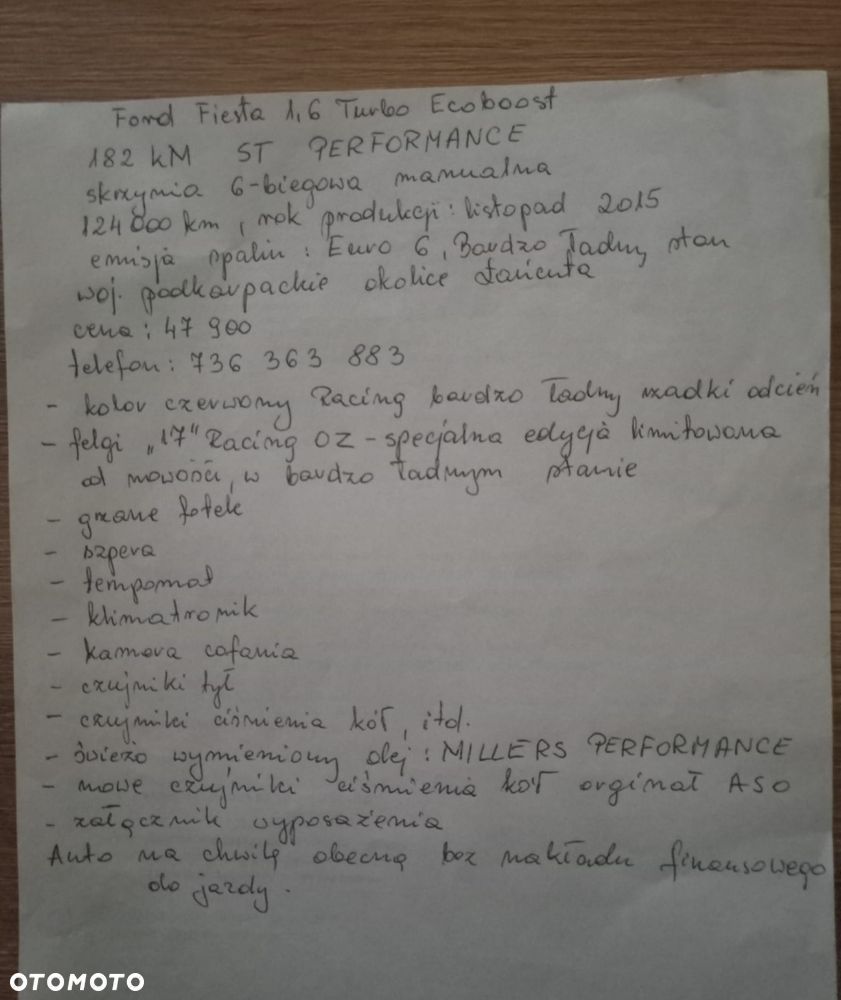 Ford Fiesta 1,6 Turbo Ecoboost
182 kM ST PERFORMANCE
skrzynia 6-biegowa manualna
124 000 km, rok produkcji: listopad 2015
emisja spalin: Euro 6, Bardzo ładny stan
woj. podkarpackie okolice Łańcuta
cena: 47 900
telefon: 736 363 883
- kolor czerwony Racing bardzo ładny rzadki odcień
- felgi „17" Racing OZ - specjalna edycja limitowana
od nowości, w bardzo ładnym stanie
- grzane fotele
- szpera
- tempomat
- klimatronik
- kamera cofania
- czujniki tył
- czujniki ciśnienia kół, itd.
- świeżo wymieniony olej: MILLERS PERFORMANCE
- nowe czujniki ciśnienia kół orginał ASO
- załącznik wyposażenia
Auto na chwilę obecną bez nakładu finansowego
do jazdy.
OTOMOTO